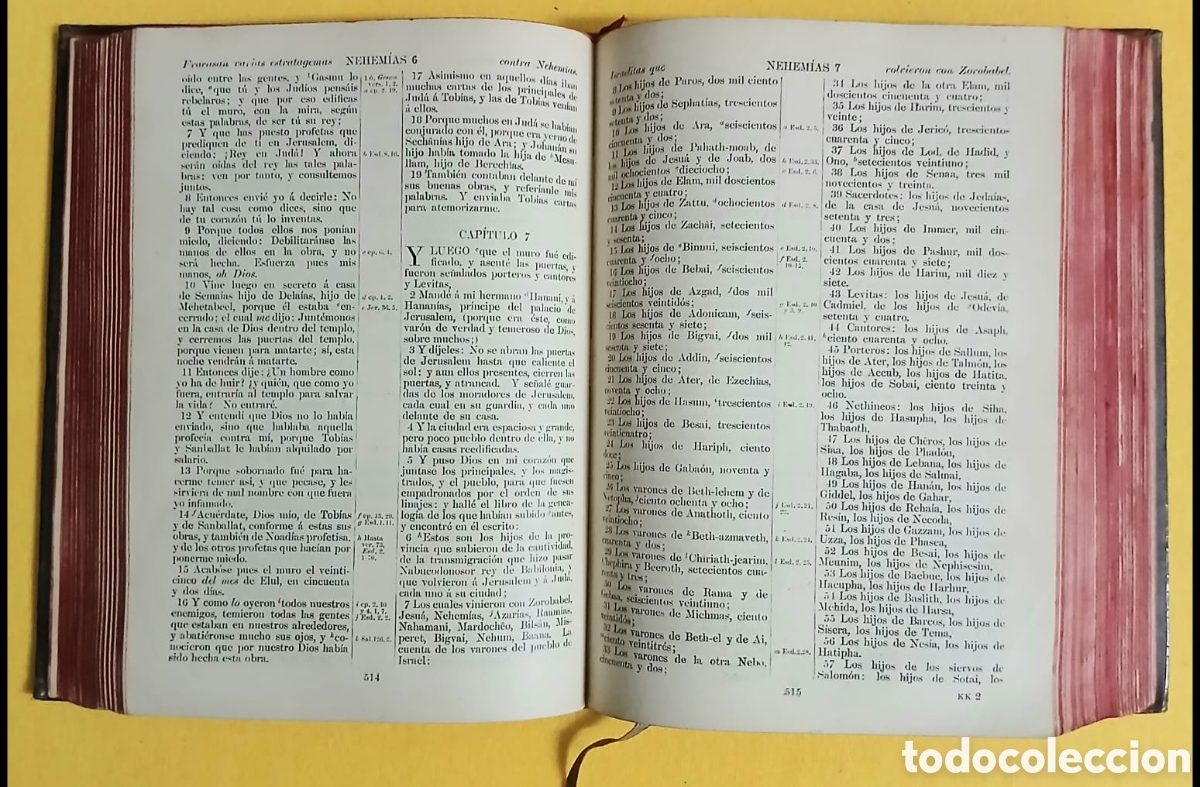 Fracasan varias estratagemas NEHEMÍAS 6 contra Nehemías.
oído entre las gentes, y Gasmu lo
dice, que tú y los Judíos pensáis
rebelaros; y que por eso edificas
tú el muro, con la mira, según
estas palabras, de ser tú su rey;
7 Y que has puesto profetas que
prediquen de ti en Jerusalem, di-
ciendo: ¡Rey en Judá! Y ahora
serán oídas del rey las tales pala-
bras: ven por tanto, y consultemos
juntos.
8 Entonces envié yo á decirle: No
hay tal cosa como dices, sino que
de tu corazón tú lo inventas.
9 Porque todos ellos nos ponían
miedo, diciendo: Debilitaránse las
manos de ellos en la obra, y no
será hecha. Esfuerza pues mis
manos, oh Dios.
10 Vine luego en secreto á casa
de Semaías hijo de Delaías, hijo de
Mehetabeel, porque él estaba en-
cerrado; el cual me dijo: Juntémonos
en la casa de Dios dentro del templo,
y cerremos las puertas del templo,
porque vienen para matarte; sí, esta
noche vendrán á matarte.
11 Entonces dije: ¿Un hombre como
yo ha de huir? ¿y quién, que como yo
fuera, entraría al templo para salvar
la vida? No entraré.
12 Y entendí que Dios no lo había
enviado, sino que hablaba aquella
profecía contra mí, porque Tobías
y Sanballat le habían alquilado por
salario.
13 Porque sobornado fué para ha-
cerme temer así, y que pecase, y les
sirviera de mal nombre con que fuera
yo infamado.
14 Acuérdate, Dios mío, de Tobías
y de Sanballat, conforme á estas sus
obras, y también de Noadías profetisa,
y de los otros profetas que hacían por
ponerme miedo.
15 Acabóse pues el muro el veinti-
cinco del mes de Elul, en cincuenta
y dos días.
16 Y como lo oyeron todos nuestros
enemigos, temieron todas las gentes
que estaban en nuestros alrededores,
y abatiéronse mucho sus ojos, y co-
nocieron que por nuestro Dios había
sido hecha esta obra.
b Esd. 8, 16.
c cp. 4. 1.
d ep. 1. 2.
e Jer. 36. 5.
f cp. 13. 29.
g Esd. 1. 11.
h Hasta
ver. 73,
Esd. 2.
1-70.
i cp. 2. 10
y 4. 1, 7.
j Esd. 2. 2.
k Sal. 126. 2.
17 Asimismo en aquellos días iban
muchas cartas de los principales de
Judá á Tobías, y las de Tobías venían
á ellos.
18 Porque muchos en Judá se habían
conjurado con él, porque era yerno de
Sechânías hijo de Ara; y Johanán su
hijo había tomado la hija de Mesu-
llam, hijo de Berechîas.
19 También contaban delante de mí
sus buenas obras, y referíanle mis
palabras. Y enviaba Tobías cartas
para atemorizarme.
CAPÍTULO 7
Y LUEGO que el muro fué edi-
ficado, y asenté las puertas, y
fueron señalados porteros y cantores
y Levitas,
2 Mandé á mi hermano Hanani, y á
Hananías, príncipe del palacio de
Jerusalem, (porque era éste, como
varón de verdad y temeroso de Dios,
sobre muchos;)
3 Y díjeles: No se abran las puertas
de Jerusalem hasta que caliente el
sol: y aun ellos presentes, cierren las
puertas, y atrancad. Y señalé guar-
das de los moradores de Jerusalem,
cada cual en su guardia, y cada uno
delante de su casa.
4 Y la ciudad era espaciosa y grande,
pero poco pueblo dentro de ella, y no
había casas reedificadas.
5 Y puso Dios en mi corazón que
juntase los principales, y los magis-
trados, y el pueblo, para que fuesen
empadronados por el orden de sus
linajes: y hallé el libro de la genea-
logía de los que habían subido antes,
y encontré en él escrito:
6 Estos son los hijos de la pro-
vincia que subieron de la cautividad,
de la transmigración que hizo pasar
Nabucodonosor rey de Babilonia, y
que volvieron á Jerusalem y á Judá,
cada uno á su ciudad;
7 Los cuales vinieron con Zorobabel,
Jesuá, Nehemías, Azarías, Raamías,
Nahamani, Mardochêo, Bilsán, Mis-
peret, Bigvai, Nehum, Baana. La
cuenta de los varones del pueblo de
Israel:
514
Israelitas que NEHEMÍAS 7 volvieron con Zorobabel.
8 Los hijos de Paros, dos mil ciento
setenta y dos;
9 Los hijos de Sephatías, trescientos
setenta y dos;
10 Los hijos de Ara, seiscientos
cincuenta y dos;
11 Los hijos de Pahath-moab, de
los hijos de Jesuá y de Joab, dos
mil ochocientos dieciocho;
12 Los hijos de Elam, mil doscientos
cincuenta y cuatro;
13 Los hijos de Zattu, ochocientos
cuarenta y cinco;
14 Los hijos de Zachâi, setecientos
y sesenta;
15 Los hijos de Binnui, seiscientos
cuarenta y ocho;
16 Los hijos de Bebai, seiscientos
veintiocho;
17 Los hijos de Azgad, dos mil
seiscientos veintidós;
18 Los hijos de Adonicam, seis-
cientos sesenta y siete;
19 Los hijos de Bigvai, dos mil
sesenta y siete;
20 Los hijos de Addin, seiscientos
cincuenta y cinco;
21 Los hijos de Ater, de Ezechîas,
noventa y ocho;
22 Los hijos de Hasum, trescientos
veintiocho;
23 Los hijos de Besai, trescientos
veinticuatro;
24 Los hijos de Hariph, ciento
doce;
25 Los hijos de Gabaón, noventa y
cinco;
26 Los varones de Beth-lehem y de
Netopha, ciento ochenta y ocho;
27 Los varones de Anathoth, ciento
veintiocho;
28 Los varones de Beth-azmaveth,
cuarenta y dos;
29 Los varones de Chîriath-jearim,
Chephira y Beeroth, setecientos cua-
renta y tres;
30 Los varones de Rama y de
Gebaa, seiscientos veintiuno;
31 Los varones de Michmas, ciento
veintidós;
32 Los varones de Beth-el y de Ai,
ciento veintitrés;
33 Los varones de la otra Nebo,
cincuenta y dos;
a Esd. 2. 5.
d Esd. 2. 8.
e Esd. 2. 10.
f Esd. 2.
10-15.
i Esd. 2. 19.
k Esd. 2. 24.
l Esd. 2. 25.
m Esd. 2. 28.
34 Los hijos de la otra Elam, mil
doscientos cincuenta y cuatro;
35 Los hijos de Harim, trescientos y
veinte;
36 Los hijos de Jericó, trescientos
cuarenta y cinco;
37 Los hijos de Lod, de Hadid, y
Ono, setecientos veintiuno;
38 Los hijos de Senaa, tres mil
novecientos y treinta.
39 Sacerdotes: los hijos de Jedaías,
de la casa de Jesuá, novecientos
setenta y tres;
40 Los hijos de Immer, mil cin-
cuenta y dos;
41 Los hijos de Pashur, mil dos-
cientos cuarenta y siete;
42 Los hijos de Harim, mil diez y
siete.
43 Levitas: los hijos de Jesuá, de
Cadmiel, de los hijos de Odevía,
setenta y cuatro.
44 Cantores: los hijos de Asaph,
ciento cuarenta y ocho.
45 Porteros: los hijos de Sallum, los
hijos de Ater, los hijos de Talmón, los
hijos de Accub, los hijos de Hatita,
los hijos de Sobai, ciento treinta y
ocho.
46 Nethineos: los hijos de Siha,
los hijos de Hasupha, los hijos de
Thabaoth,
47 Los hijos de Chêros, los hijos de
Siaa, los hijos de Phadón,
48 Los hijos de Lebana, los hijos de
Hagaba, los hijos de Salmai,
49 Los hijos de Hanán, los hijos de
Giddel, los hijos de Gahar,
50 Los hijos de Rehaía, los hijos de
Resín, los hijos de Necoda,
51 Los hijos de Gazzam, los hijos de
Uzza, los hijos de Phasea,
52 Los hijos de Besai, los hijos de
Meunim, los hijos de Nephisesim,
53 Los hijos de Bacbuc, los hijos de
Hacupha, los hijos de Harhur,
54 Los hijos de Baslith, los hijos de
Mehida, los hijos de Harsa,
55 Los hijos de Barcos, los hijos de
Sísera, los hijos de Tema,
56 Los hijos de Nesía, los hijos de
Hatipha.
57 Los hijos de los siervos de
Salomón: los hijos de Sotai, los
515
KK 2
todocoleccion